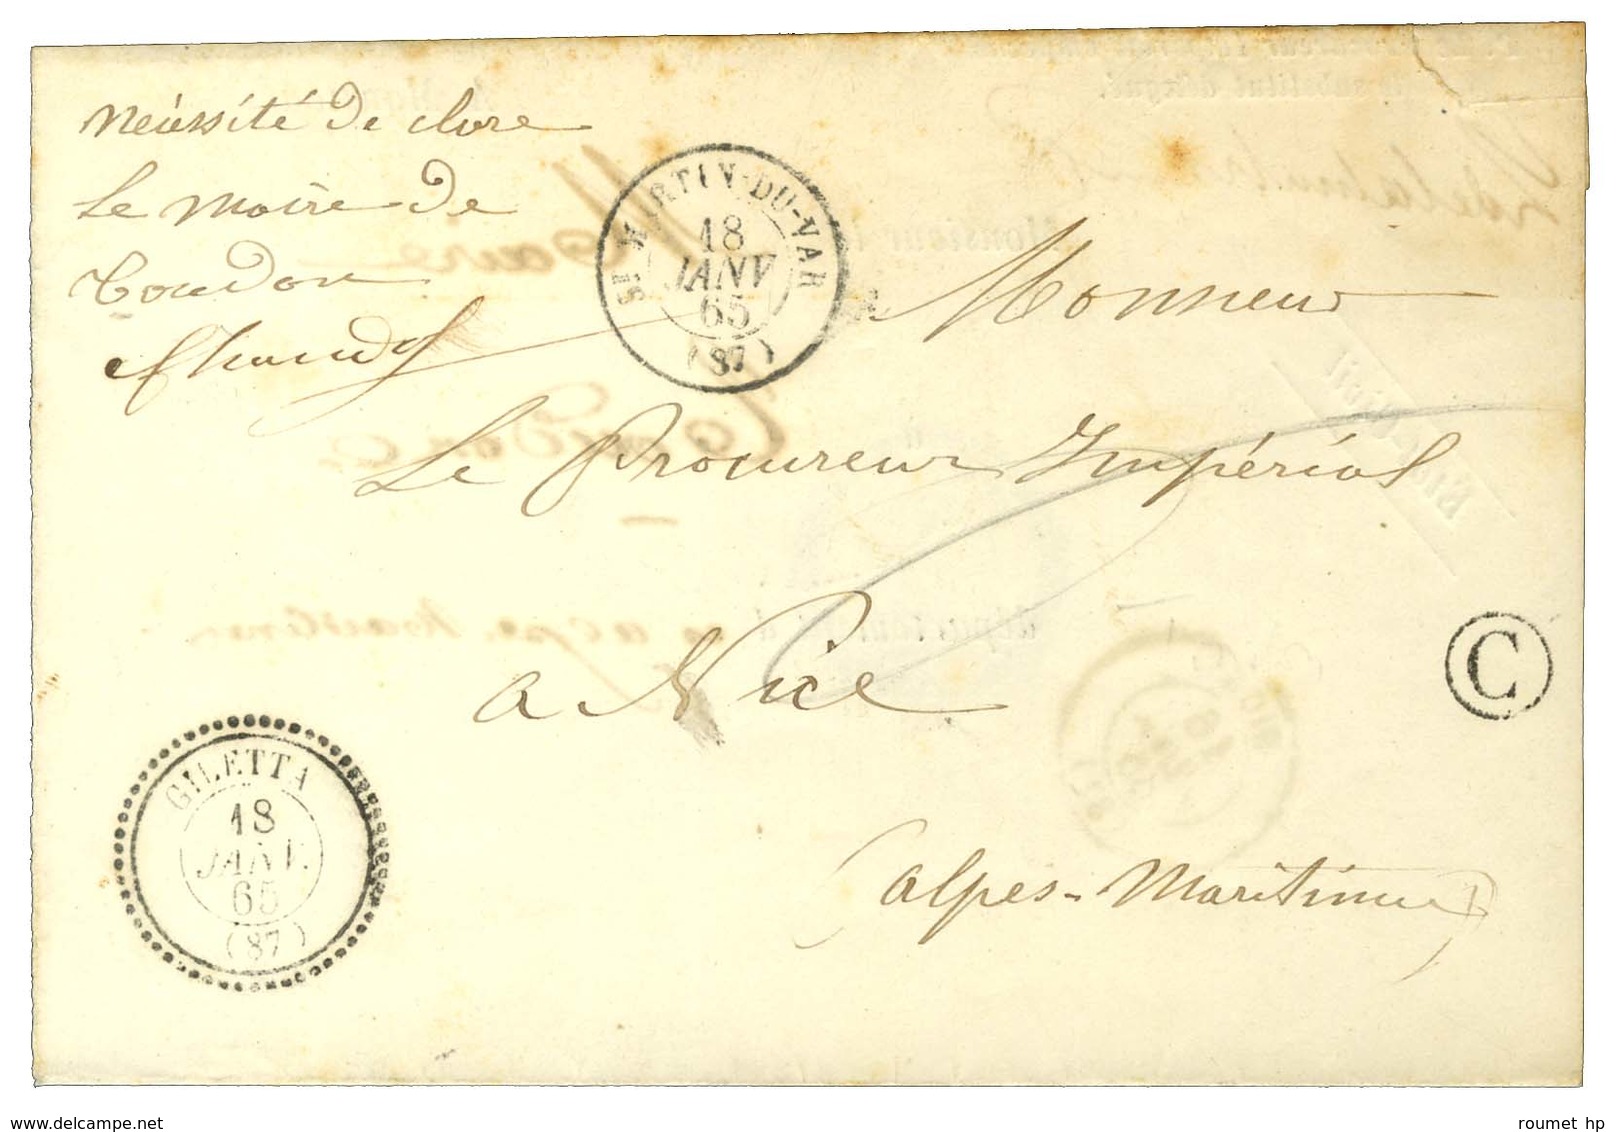 Nécessité de clore
Le Maire de
Toudon
ST MARTIN-DU-VAR
18
JANV
65
(87)
Monsieur
Le Procureur Impérial
a Nice
C
GILETTA
18
JANV.
65
(87)
(Alpes-Maritimes)
roumet hp